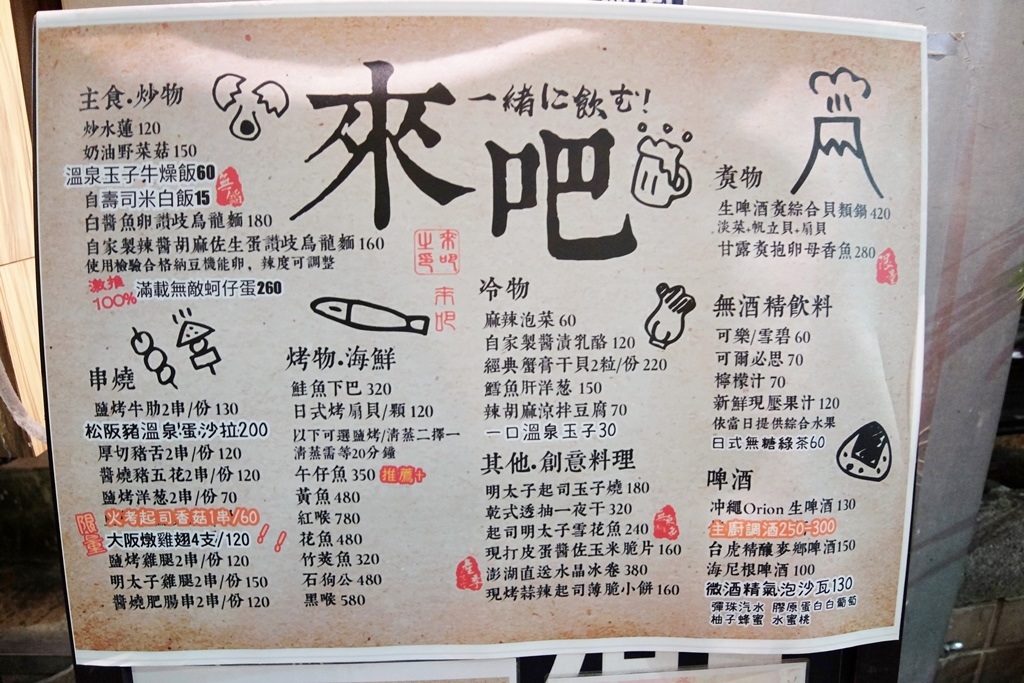 來吧
一緒に飲む!
主食·炒物
炒水蓮 120
奶油野菜菇 150
溫泉玉子牛燥飯60
自壽司米白飯15
白醬魚卵讚歧烏龍麵 180
自家製辣醬胡麻佐生蛋讚歧烏龍麵 160
使用檢驗合格納豆機能卵,辣度可調整
激推
100%
滿載無敵蚵仔蛋260
串燒
鹽烤牛肋2串/份 130
松阪豬溫泉蛋沙拉200
厚切豬舌2串/份 120
醬燒豬五花2串/份 120
鹽烤洋葱2串/份 70
限量
火考起司香菇1串/60
大阪燉雞翅4支/120 !!
鹽烤雞腿2串/份 120
明太子雞腿2串/份 150
醬燒肥腸串2串/份 120
烤物·海鮮
鮭魚下巴 320
日式烤扇貝/顆 120
以下可選鹽烤/清蒸二擇一
清蒸需等20分鐘
午仔魚 350 推薦+
黃魚 480
紅喉 780
花魚 480
竹莢魚 320
石狗公 480
黑喉 580
來吧
冷物
麻辣泡菜 60
自家製醬漬乳酪 120
經典蟹膏干貝2粒/份 220
鱈魚肝洋葱 150
辣胡麻涼拌豆腐 70
一口溫泉玉子30
其他·創意料理
明太子起司玉子燒 180
乾式透抽一夜干 320
起司明太子雪花魚 240
現打皮蛋醬佐玉米脆片 160
澎湖直送水晶冰卷 380
現烤蒜辣起司薄脆小餅 160
煮物
生啤酒煮綜合貝類鍋 420
淡菜·帆立貝·扇貝
甘露煮抱卵母香魚 280
無酒精飲料
可樂/雪碧 60
可爾必思 70
檸檬汁 70
新鮮現壓果汁 120
依當日提供綜合水果
日式無糖綠茶60
啤酒
冲繩Orion 生啤酒 130
主廚調酒250-300
台虎精釀麥鄉啤酒150
海尼根啤酒 100
微酒精氣泡沙瓦130
彈珠汽水 膠原蛋白白葡萄
柚子蜂蜜 水蜜桃